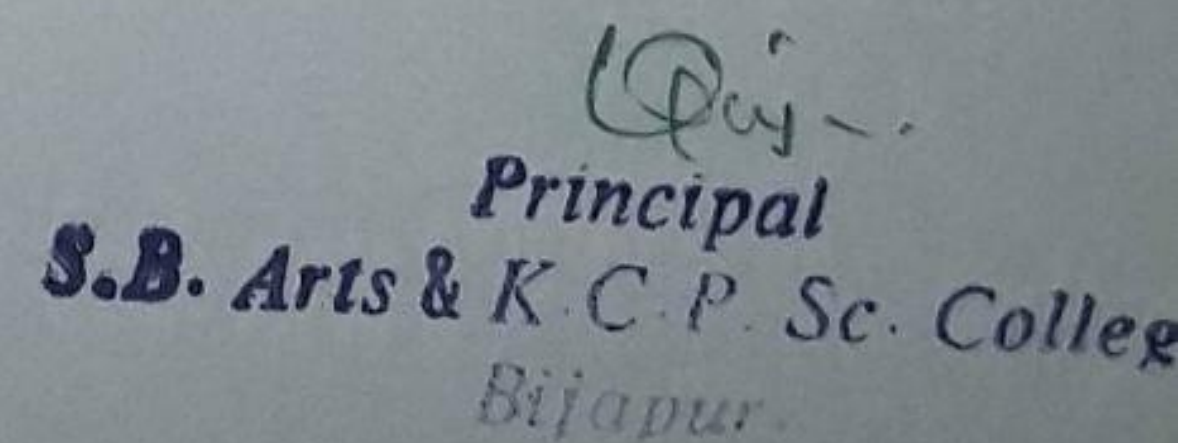 Principal
S.B. Arts & K.C.P. Sc. Colleg
Bijapur.